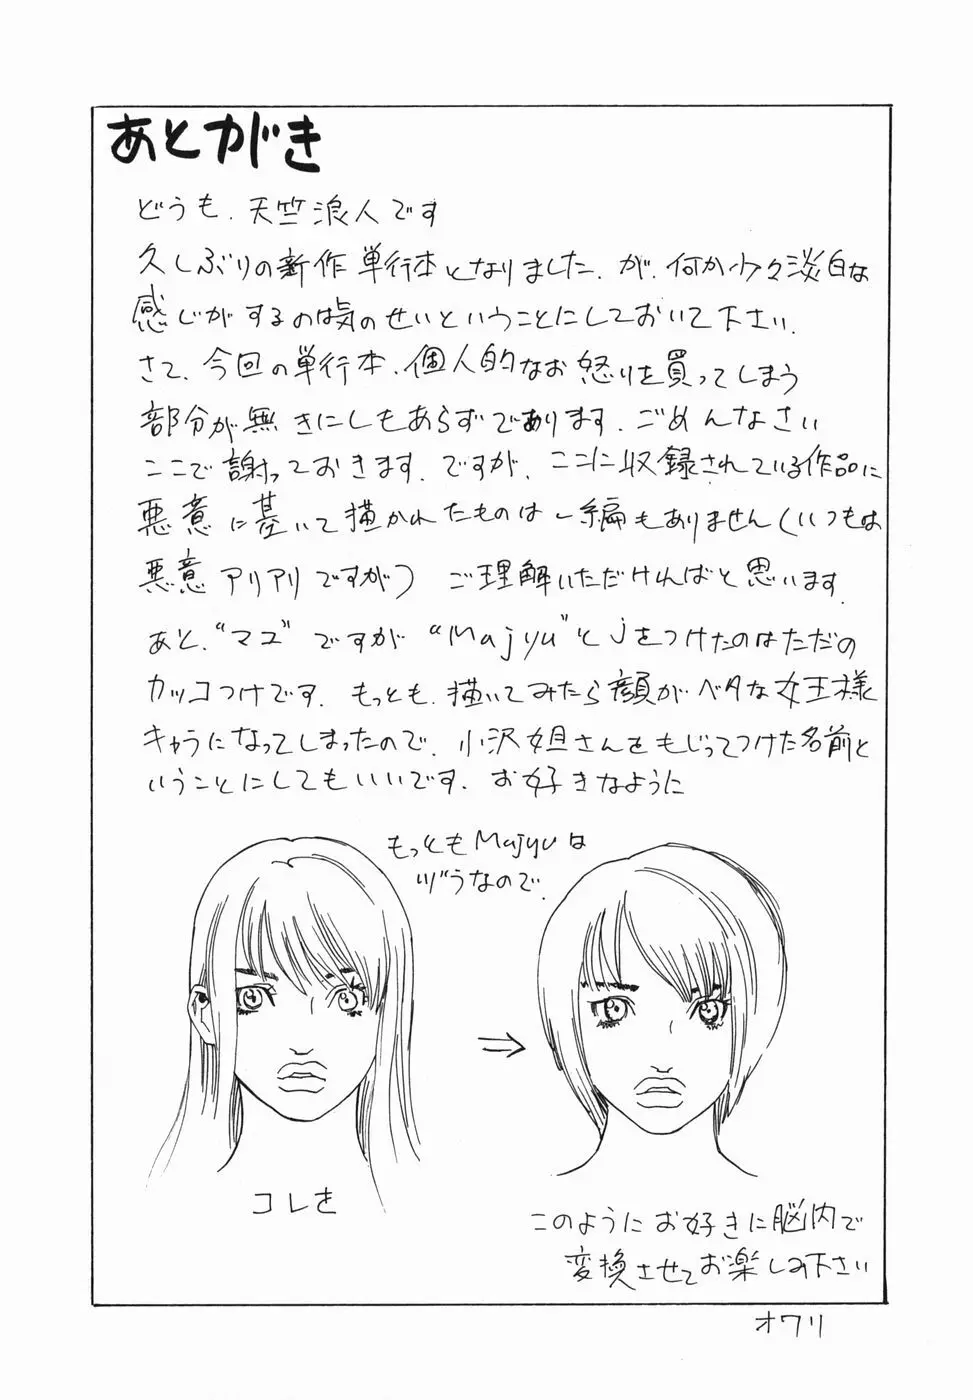 あとがき
どうも、天竺浪人です
久しぶりの新作単行本となりました、が、何か少々淡白な
感じがするのは気のせいということにしておいて下さい。
さて、今回の単行本、個人的なお怒りを買ってしまう
部分が無きにしもあらずであります。ごめんなさい
ここで謝っておきます。ですが、ここに収録されている作品に
悪意に基いて描かれたものは一編もありません(いつもは
悪意アリアリですが) ご理解いただければと思います。
あと、“マユ”ですが “Majyu”とjをつけたのはただの
カッコつけです。もっとも、描いてみたら顔がベタな女王様
キャラになってしまったので、小沢姐さんをもじってつけた名前と
いうことにしてもいいです。お好きなように
もっともMajyuは
ヅラなので、
コレを
→
このようにお好きに脳内で
変換させてお楽しみ下さい
オワリ